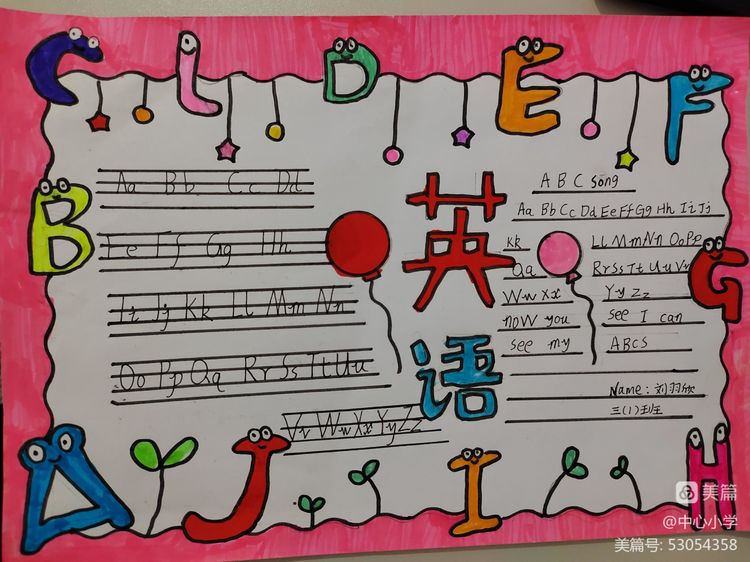 C L D E F
B
Aa Bb Cc Dd
Ee Ff Gg Hh
Ii Jj Kk Ll Mm Nn
Oo Pp Qq Rr Ss Tt Uu
Vv Ww Xx Yy Zz
英
语
A B C song
Aa Bb Cc Dd Ee Ff Gg Hh Ii Jj
Kk Ll Mm Nn Oo Pp
Qq Rr Ss Tt Uu Vv
Ww Xx Yy Zz
now you see I can
see my ABCS
Name: 刘羽欣
三(1)班
G
A J I H
美篇
@中心小学
美篇号: 53054358